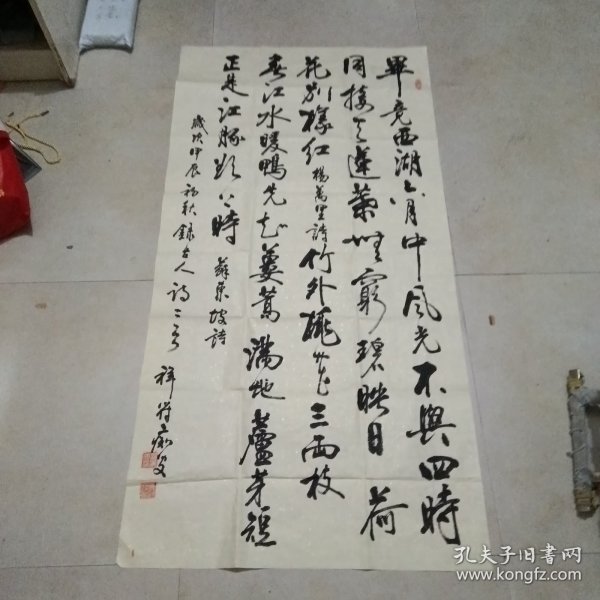 畢竟西湖六月中風光不與四時
同接天蓮葉無窮碧映日荷
花別樣紅 楊萬里詩 竹外桃花三兩枝
春江水暖鴨先知蔞蒿滿地蘆芽短
正是江豚欲上時 蘇東坡詩
歲次甲辰初秋錄古人詩二首 祥符痴叟
孔夫子旧书网
www.kongfz.com